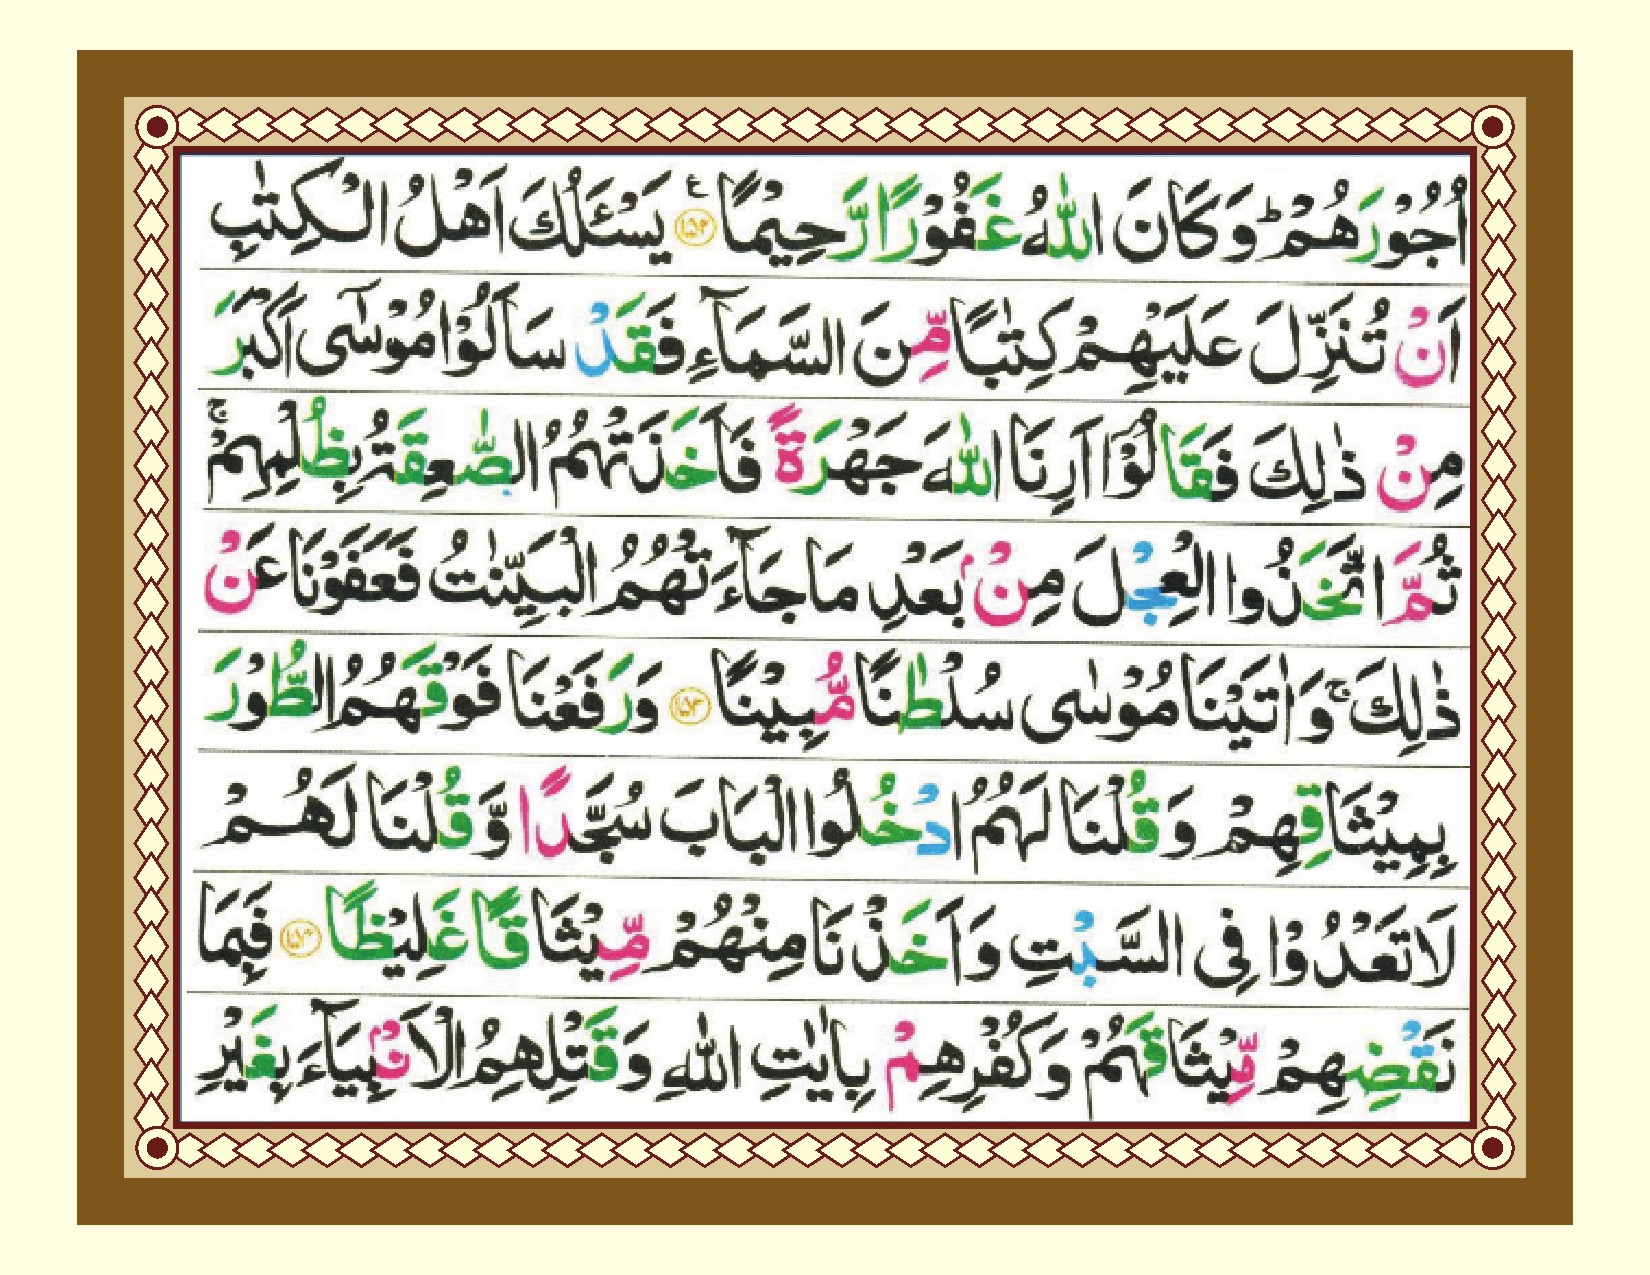 اُجُوْرَهُمْ ؕ وَكَانَ اللّٰهُ غَفُوْرًا رَّحِيْمًا ﴿۱۵۲﴾ ع يَسْـَٔلُكَ اَهْلُ الْكِتٰبِ
اَنْ تُنَزِّلَ عَلَيْهِمْ كِتٰبًا مِّنَ السَّمَآءِ فَقَدْ سَاَلُوْا مُوْسٰٓى اَكْبَرَ
مِنْ ذٰلِكَ فَقَالُوْٓا اَرِنَا اللّٰهَ جَهْرَةً فَاَخَذَتْهُمُ الصّٰعِقَةُ بِظُلْمِهِمْ ۚ
ثُمَّ اتَّخَذُوا الْعِجْلَ مِنْۢ بَعْدِ مَا جَآءَتْهُمُ الْبَيِّنٰتُ فَعَفَوْنَا عَنْ
ذٰلِكَ ۚ وَاٰتَيْنَا مُوْسٰى سُلْطٰنًا مُّبِيْنًا ﴿۱۵۳﴾ وَرَفَعْنَا فَوْقَهُمُ الطُّوْرَ
بِمِيْثَاقِهِمْ وَقُلْنَا لَهُمُ ادْخُلُوا الْبَابَ سُجَّدًا وَّقُلْنَا لَهُمْ
لَا تَعْدُوْا فِى السَّبْتِ وَاَخَذْنَا مِنْهُمْ مِّيْثَاقًا غَلِيْظًا ﴿۱۵۴﴾ فَبِمَا
نَقْضِهِمْ مِّيْثَاقَهُمْ وَكُفْرِهِمْ بِاٰيٰتِ اللّٰهِ وَقَتْلِهِمُ الْاَنْۢبِيَآءَ بِغَيْرِ